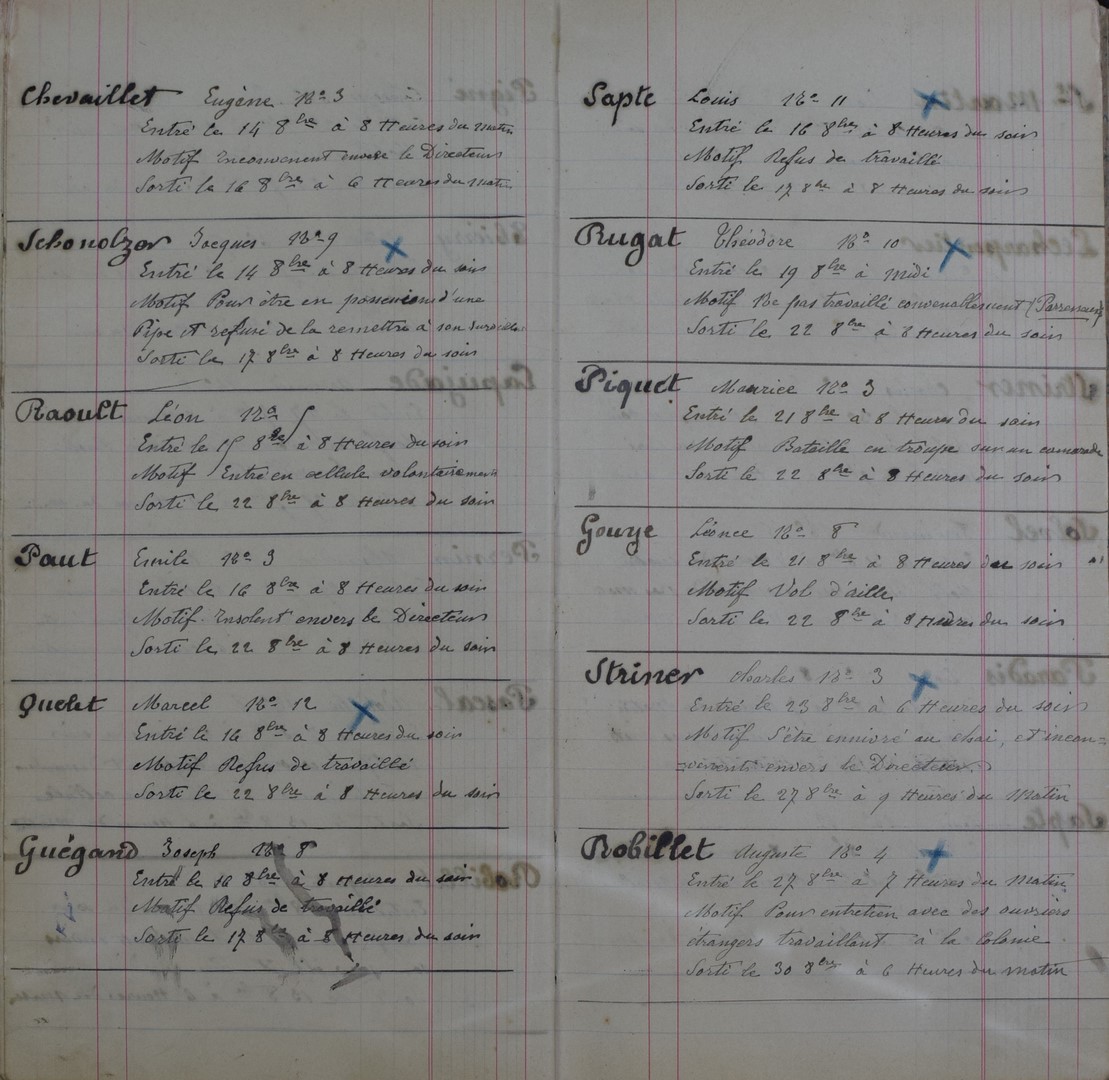 Chevaillet Eugène No 3
Entré le 14 8bre à 8 Heures du matin
Motif Inconvenent envers le Directeur
Sorti le 16 8bre à 6 Heures du Matin
Schonolzer Jacques No 9
Entré le 14 8bre à 8 Heures du soir
Motif Pour être en possession d'une
Pipe et refusé de la remettre à son
Sorti le 17 8bre à 8 Heures du soir
Raoult Léon No
Entré le 15 8bre à 8 Heures du soir
Motif Entré en cellule volontairement
Sorti le 22 8bre à 8 Heures du soir
Paut Emile No 3
Entré le 16 8bre à 8 Heures du soir
Motif Insolent envers le Directeur
Sorti le 22 8bre à 8 Heures du soir
Quelet Marcel No 12
Entré le 16 8bre à 8 Heures du soir
Motif Refus de travaillé
Sorti le 22 8bre à 8 Heures du soir
Guégand Joseph No 8
Entré le 16 8bre à 8 Heures du soir
Motif Refus de travaillé
Sorti le 17 8bre à 8 Heures du soir
Sapte Louis No 11
Entré le 16 8bre à 8 Heures du soir
Motif Refus de travaillé
Sorti le 17 8bre à 8 Heures du soir
Rugat Théodore No 10
Entré le 19 8bre à midi
Motif Ne pas travaillé convenablement (Parresseux)
Sorti le 22 8bre à 8 Heures du soir
Piquet Maurice No 3
Entré le 21 8bre à 8 Heures du soir
Motif Bataille en troupe sur un camarade
Sorti le 22 8bre à 8 Heures du soir
Gouye Léonce No 8
Entré le 21 8bre à 8 Heures du soir
Motif Vol d'aille
Sorti le 22 8bre à 8 Heures du soir
Striner Charles No 3
Entré le 23 8bre à 6 Heures du soir
Motif S'être ennivré au chai, et incon-
=venent envers le Directeur
Sorti le 27 8bre à 9 Heures du Matin
Robillet Auguste No 4
Entré le 27 8bre à 7 Heures du Matin
Motif Pour entretien avec des ouvriers
étrangers travaillant à la Colonie
Sorti le 30 8bre à 6 Heures du matin